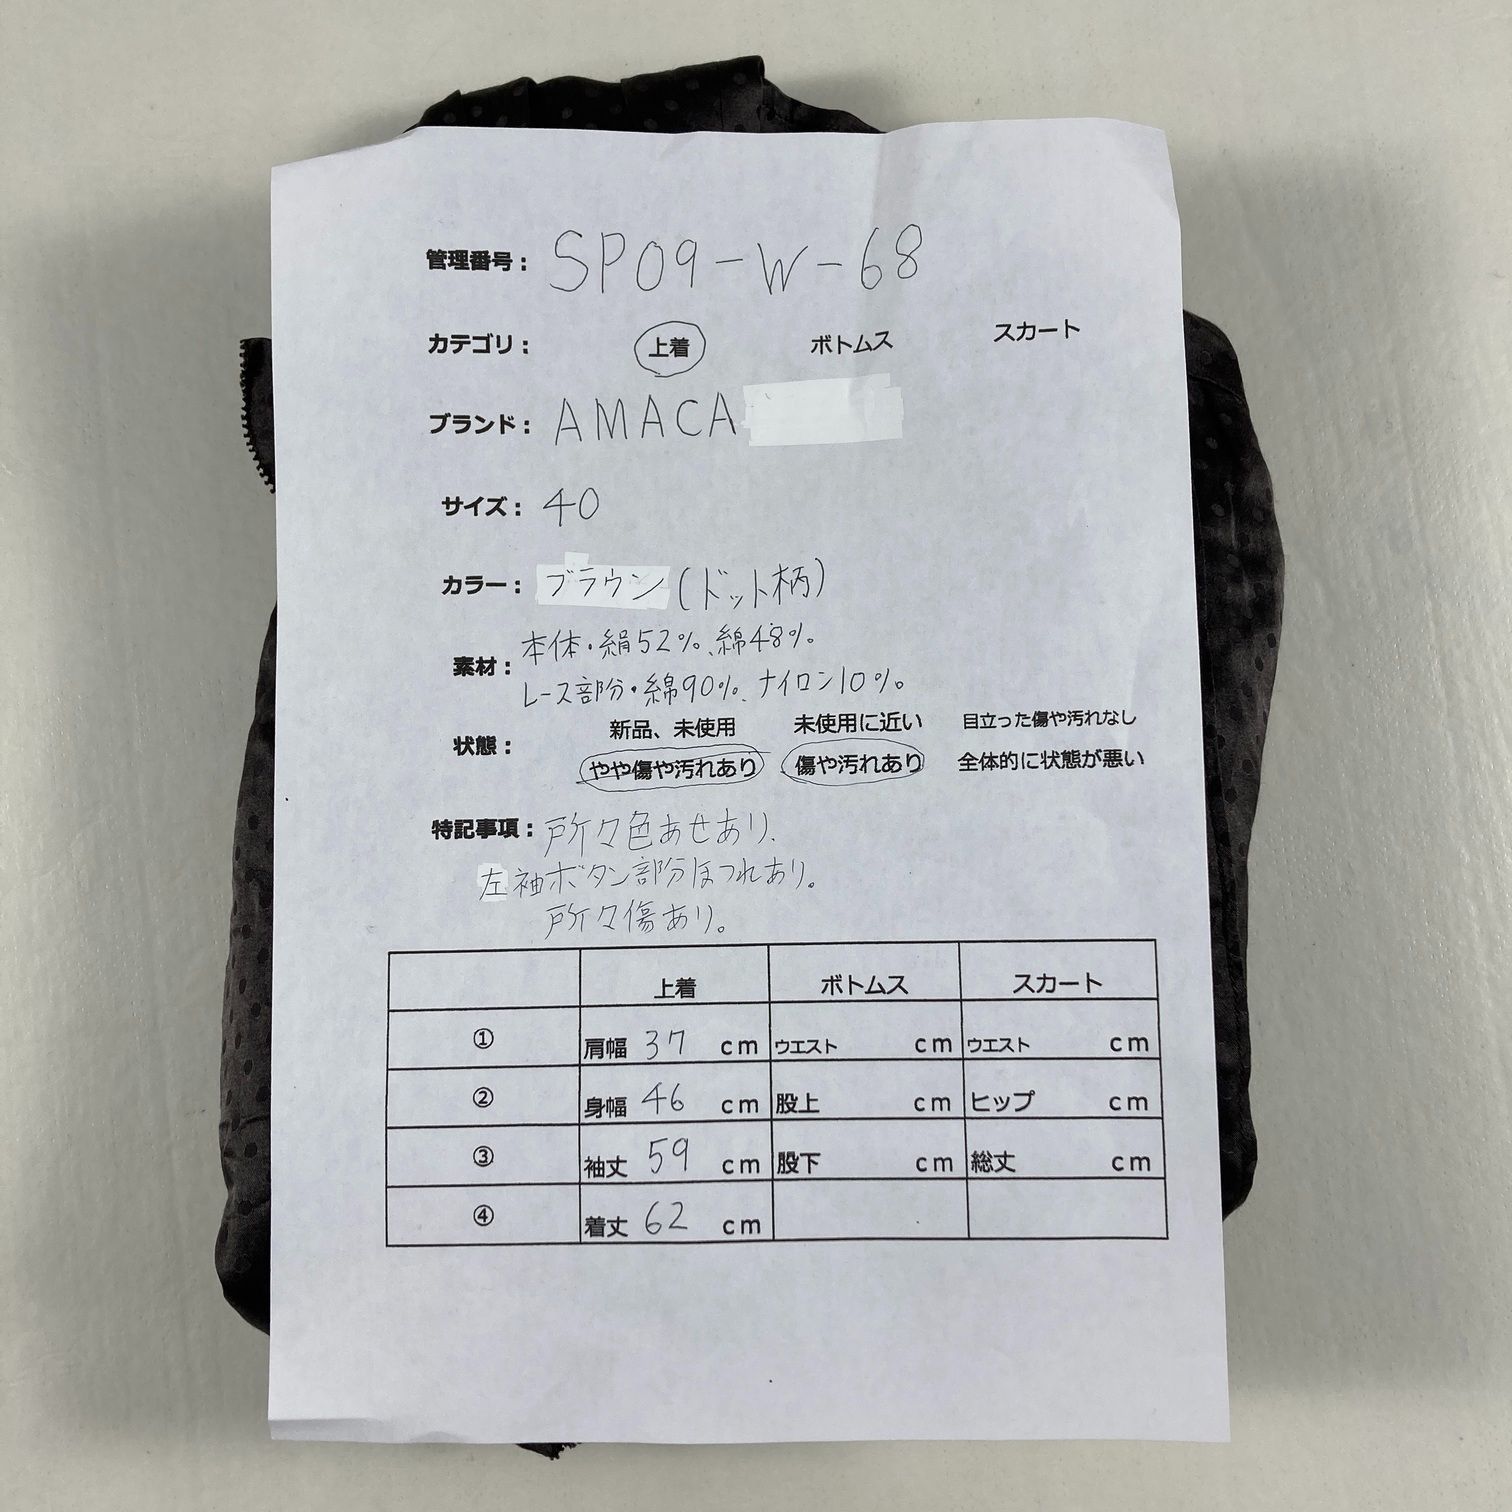 管理番号： SP09-W-68
カテゴリ： 上着 ボトムス スカート
ブランド： AMACA
サイズ： 40
カラー： ブラウン(ドット柄)
素材： 本体・絹52%、綿48%。
レース部分・綿90%、ナイロン10%。
状態： 新品、未使用 未使用に近い 目立った傷や汚れなし
やや傷や汚れあり 傷や汚れあり 全体的に状態が悪い
特記事項： 所々色あせあり、
左袖ボタン部分ほつれあり。
所々傷あり。
上着 ボトムス スカート
① 肩幅 37 cm ウエスト cm ウエスト cm
② 身幅 46 cm 股上 cm ヒップ cm
③ 袖丈 59 cm 股下 cm 総丈 cm
④ 着丈 62 cm